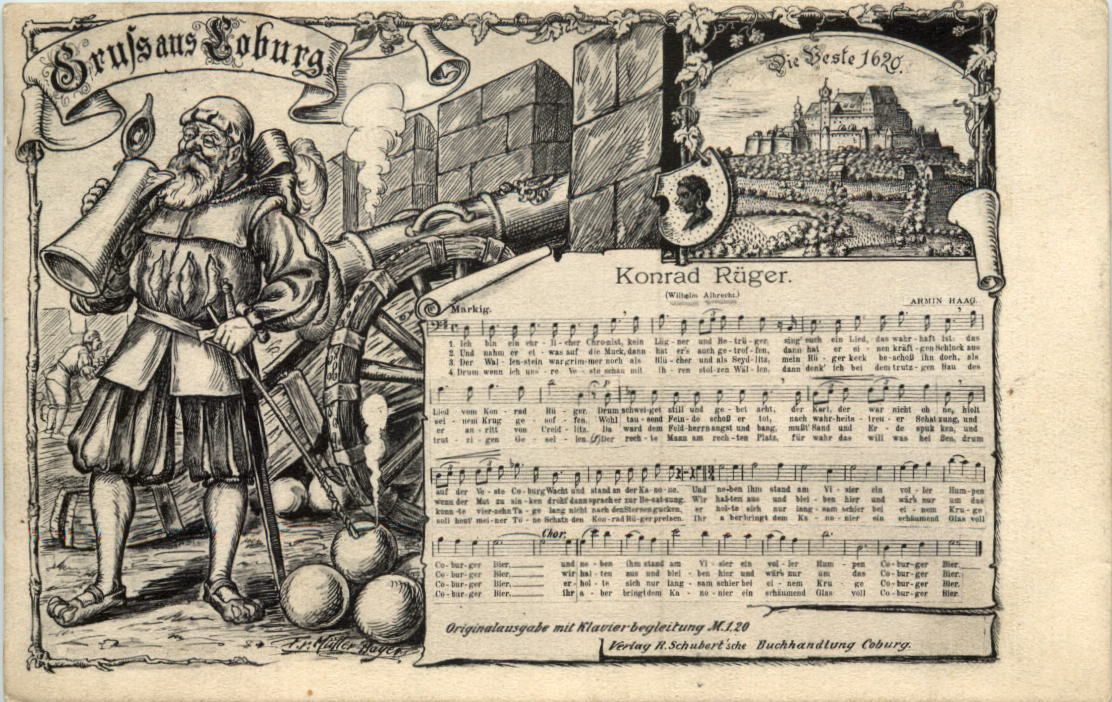 Gruss aus Coburg
Die Veste 1629.
Konrad Rüger.
(Wilhelm Albrecht.)
ARMIN HAAG.
Markig.
1. Ich bin ein ehr-li-cher Chro-nist, kein Lüg-ner und Be-trü-ger, sing' euch ein Lied, das wahr-haft ist: das
2. Und nahm er et-was auf die Muck, dann hat er's auch ge-trof-fen, dann hat er ei-nen kräft-gen Schluck aus
3. Der Wal-len-stein war grim-mer noch als Blü-cher und als Seyd-litz, mein Rü-ger keck be-schoß ihn doch, als
4. Drum wenn ich uns-re Ve-ste schau mit ih-ren stol-zen Wäl-len, dann denk' ich bei dem trutz-gen Bau des
Lied vom Kon-rad Rü-ger. Drum schwei-get still und ge-bet acht, der Kerl, der war nicht oh-ne, hielt
sei-nem Krug ge-sof-fen. Wohl tau-send Fein-de schoß er tot, nach wahr-heits-treu-er Schät-zung, und
er an-ritt von Creid-litz. Da ward dem Feld-herrn angst und bang, mußt' Sand und Er-de spuk-ken, und
trut-zi-gen Ge-sel-len. Der rech-te Mann am rech-ten Platz, für wahr das will was hei-ßen, drum
auf der Ve-ste Co-burg Wacht und stand an der Ka-no-ne. Und ne-ben ihm stand am Vi-sier ein vol-ler Hum-pen
wenn der Mut zu sin-ken droht' dann sprach er zur Be-sat-zung. Wir hal-ten aus und blei-ben hier und wär's nur um das
konn-te vier-zehn Ta-ge lang nicht nach den Sternen gucken, er hol-te sich nur lang-sam schier bei ei-nem Kru-ge
soll heut' mei-ner Tö-ne Schatz den Kon-rad Rüger preisen. Ihr a-ber bringt dem Ka-no-nier ein schäumend Glas voll
Chor.
Co-bur-ger Bier. und ne-ben ihm stand am Vi-sier ein vol-ler Hum-pen Co-bur-ger Bier.
Co-bur-ger Bier. wir hal-ten aus und blei-ben hier und wär's nur um das Co-bur-ger Bier.
Co-bur-ger Bier. er hol-te sich nur lang-sam schier bei ei-nem Kru-ge Co-bur-ger Bier.
Co-bur-ger Bier. Ihr a-ber bringt dem Ka-no-nier ein schäumend Glas voll Co-bur-ger Bier.
Originalausgabe mit Klavierbegleitung M.1,20
Verlag R. Schubert'sche Buchhandlung Coburg.
Müller